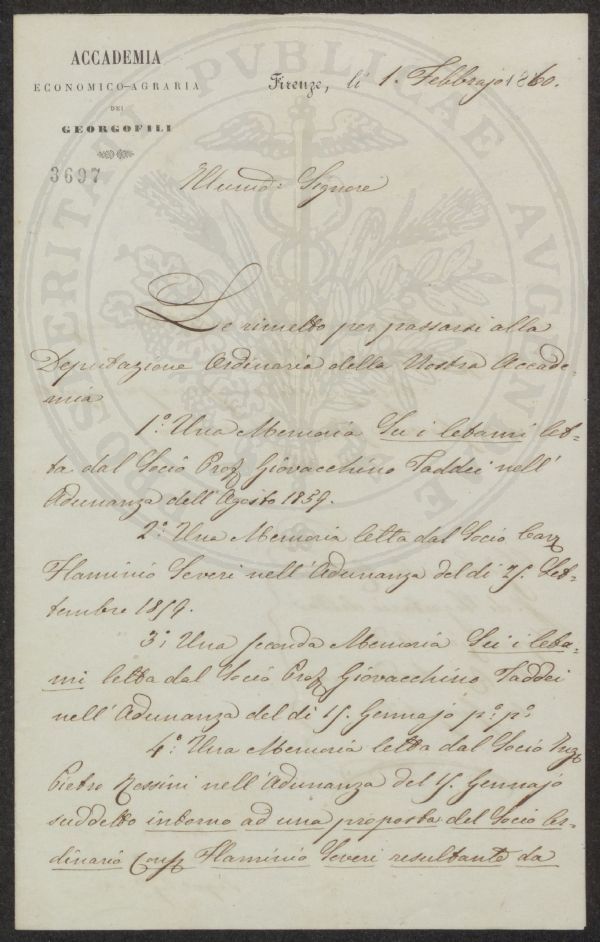 ACCADEMIA
ECONOMICO-AGRARIA
DEI
GEORGOFILI
3697
Firenze, li 1. Febbrajo 1860.
Illumo: Signore
Le rimetto per passarsi alla
Deputazione Ordinaria della Nostra Accade-
mia
1°. Una Memoria Su i letami let-
ta dal Socio Prof Giovacchino Taddei nell'
Adunanza dell'Agosto 1859.
2°. Una Memoria letta dal Socio
Flaminio Severi nell'Adunanza del di 25. Set-
tembre 1859.
3°. Una seconda Memoria Su i leta-
mi letta dal Socio Prof Giovacchino Taddei
nell'Adunanza del di 15. Gennajo p°. p°.
4°. Una Memoria letta dal Socio Ing
Pietro Rossini nell'Adunanza del 15. Gennajo
suddetto intorno ad una proposta del Socio Or-
dinario Flaminio Severi resultante da
PROSPERITATI PVBLICAE AVGENDAE